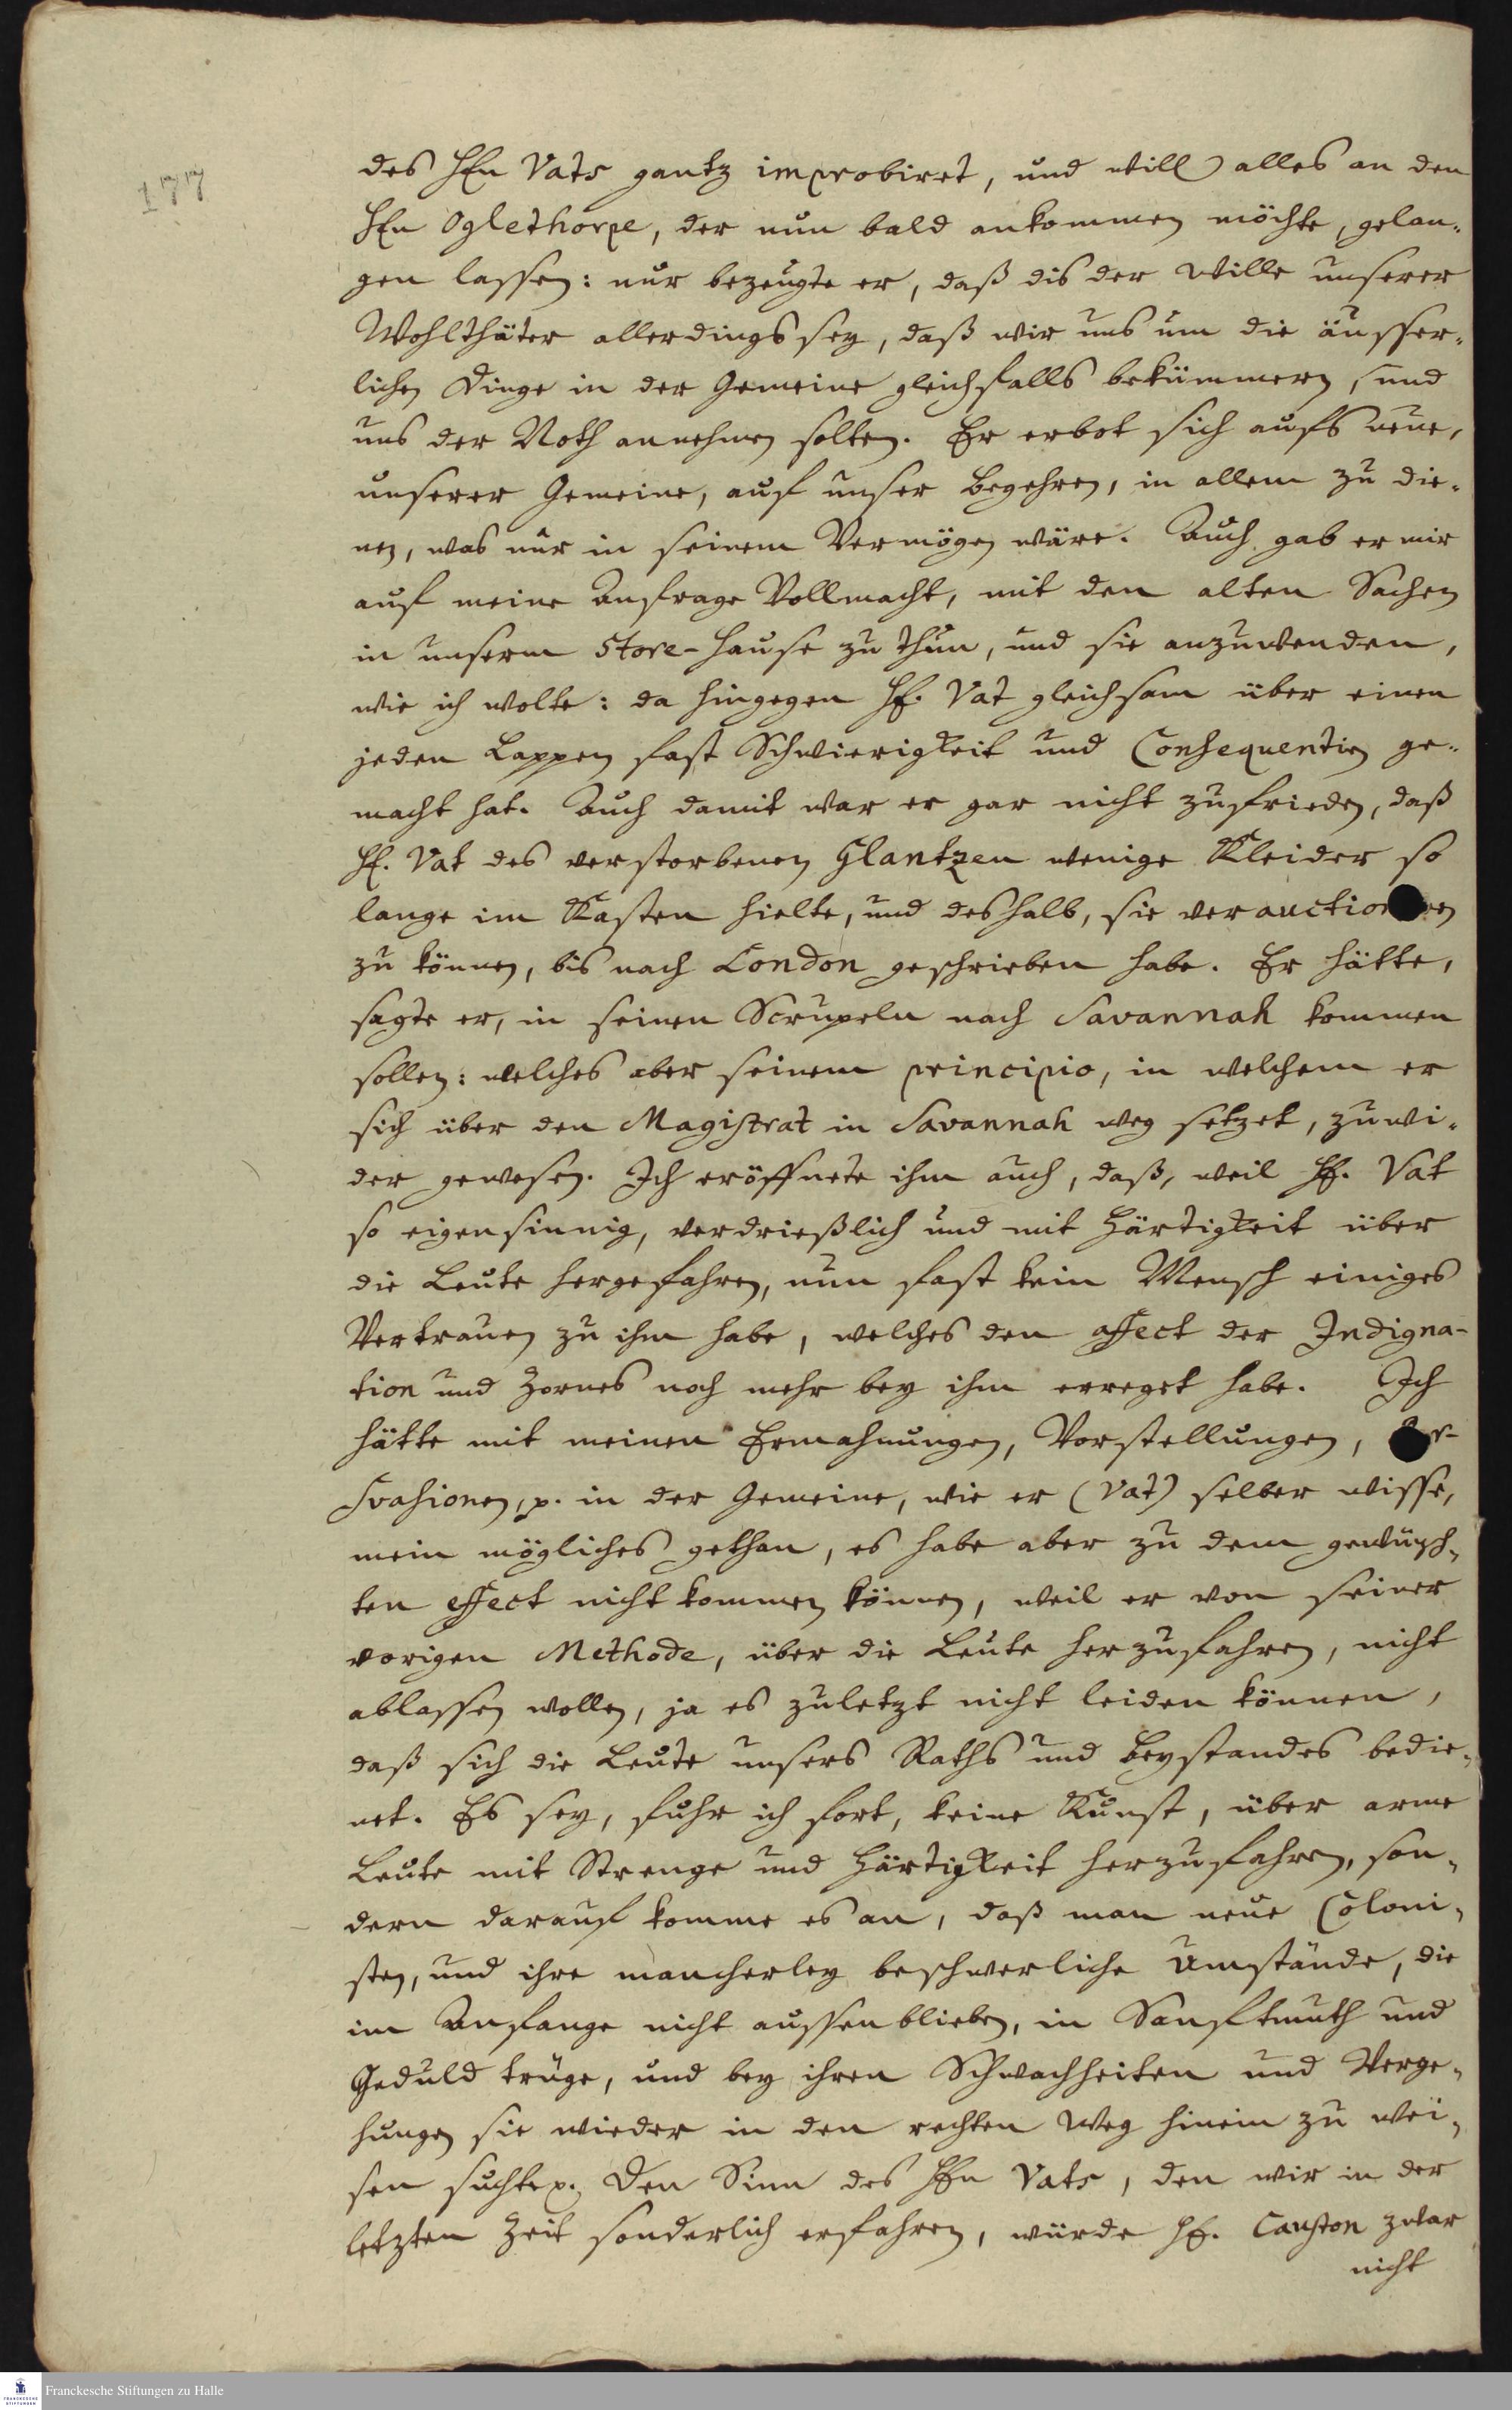 177
des HEn Vats gantz improbiret, und will alles an den
HEn Oglethorpe, der nun bald ankommen möchte, gelan-
gen lassen: nur bezeugte er, daß dis der Wille unserer
Wohlthäter allerdings sey, daß wir uns um die äusser-
lichen Dinge in der Gemeine gleichfalls bekümmern, und
uns der Noth annehmen solten. Er erbot sich aufs neue,
unserer Gemeine, auf unser Begehren, in allem zu die-
nen, was nur in seinem Vermögen wäre. Auch gab er mir
auf meine Anfrage Vollmacht, mit den alten Sachen
in unserm Store-Hause zu thun, und sie anzuwenden,
wie ich wolte: da hingegen HE. Vat gleichsam über einen
jeden Lappen fast Schwierigkeit und Consequentien ge-
macht hat. Auch damit war er gar nicht zufrieden, daß
HE. Vat des verstorbenen Glantzen wenige Kleider so
lange im Kasten hielte, und deshalb, sie verauction en
zu können, bis nach London geschrieben habe. Er hätte,
sagte er, in seinen Scrupeln nach Savannah kommen
sollen: welches aber seinem principio, in welchem er
sich über den Magistrat in Savannah weg setzet, zuwi-
der gewesen. Ich eröffnete ihm auch, daß, weil HE. Vat
so eigensinnig, verdrießlich und mit Härtigkeit über
die Leute hergefahren, nun fast kein Mensch einiges
Vertrauen zu ihm habe, welches den affect der Indigna-
tion und Zornes noch mehr bey ihm erreget habe. Ich
hätte mit meinen Ermahnungen, Vorstellungen,
svasionen, p. in der Gemeine, wie er (Vat) selber wisse,
mein mögliches gethan, es habe aber zu dem gewünsch-
ten effect nicht kommen können, weil er von seiner
vorigen Methode, über die Leute herzufahren, nicht
ablassen wollen, ja es zuletzt nicht leiden können,
daß sich die Leute unsers Raths und Beystandes bedie-
net. Es sey, fuhr ich fort, keine Kunst, über arme
Leute mit Strenge und Härtigkeit herzufahren, son-
dern darauf komme es an, daß man neue Coloni-
sten, und ihre mancherley beschwerliche Umstände, die
im Anfange nicht aussen blieben, in Sanftmuth und
Geduld trüge, und bey ihren Schwachheiten und Verge-
hungen sie wieder in den rechten Weg hinein zu wei-
sen suchte p. Den Sinn des HEn Vats, den wir in der
letzten Zeit sonderlich erfahren, würde HE. Causton zwar
nicht
Franckesche Stiftungen zu Halle